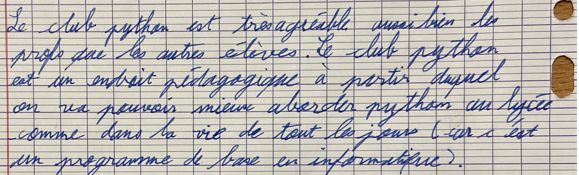 Le club python est très agréable aussi bien les
profs que les autres élèves. Le club python
est un endroit pédagogique à partir duquel
on va pouvoir mieux aborder python au lycée
comme dans la vie de tout les jours (car c'est
un programme de base en informatique).